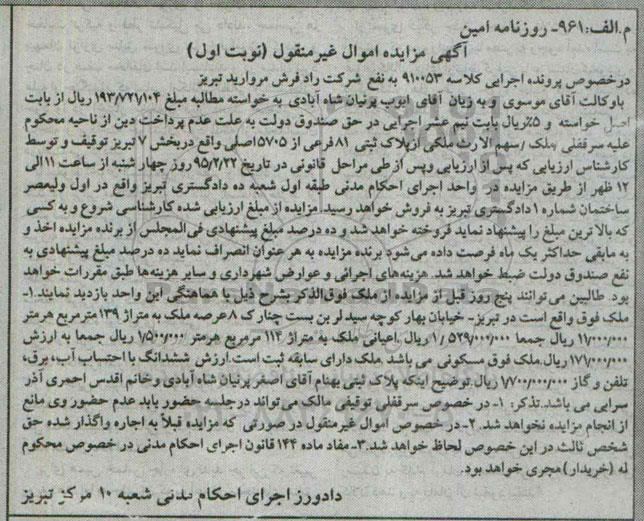 م.الف:۹۶۱- روزنامه امین
آگهی مزایده اموال غیرمنقول (نوبت اول)
درخصوص پرونده اجرایی کلاسه ۹۱۰۰۵۳ به نفع شرکت راد فرش مروارید تبریز
باوکالت آقای موسوی و به زیان آقای ایوب پرنیان شاه آبادی به خواسته مطالبه مبلغ ۱۹۳/۷۲۱/۱۰۴ ریال از بابت
اصل خواسته و ۵٪ریال بابت نیم عشر اجرایی در حق صندوق دولت به علت عدم پرداخت دین از ناحیه محکوم
علیه سرقفلی /ملک /سهم الارث ملکی ازپلاک ثبتی ۸۱فرعی از ۵۷۰۵اصلی واقع دربخش ۷ تبریز توقیف و توسط
کارشناس ارزیابی که پس از ارزیابی وپس از طی مراحل قانونی در تاریخ ۹۵/۲/۲۲روز چهار شنبه از ساعت ۱۱الی
۱۲ ظهر از طریق مزایده در واحد اجرای احکام مدنی طبقه اول شعبه ده دادگستری تبریز واقع در اول ولیعصر
ساختمان شماره ۱دادگستری تبریز به فروش خواهد رسید.مزایده از مبلغ ارزیابی شده کارشناسی شروع و به کسی
که بالا ترین مبلغ را پیشنهاد نماید فروخته خواهد شد و ده درصد مبلغ پیشنهادی فی‌المجلس از برنده مزایده اخذ و
به مابقی حداکثر یک ماه فرصت داده می‌شود برنده مزایده به هر عنوان انصراف نماید ده درصد مبلغ پیشنهادی به
نفع صندوق دولت ضبط خواهد شد. هزینه‌های اجرائی و عوارض شهرداری و سایر هزینه‌ها طبق مقررات خواهد
بود. طالبین می‌توانند پنج روز قبل از مزایده از ملک فوق‌الذکر بشرح ذیل با هماهنگی این واحد بازدید نمایند.۱-
ملک فوق واقع است در تبریز- خیابان بهار کوچه سید لر بن بست چنارک ۸عرصه ملک به متراژ ۱۳۹مترمربع هرمتر
۱۱/۰۰۰/۰۰۰ ریال جمعا ۱/۵۲۹/۰۰۰/۰۰۰ ریال.اعیانی ملک به متراژ ۱۱۴ مرمربع هرمتر ۱/۵۰۰/۰۰۰ ریال جمعا به ارزش
۱۷۱/۰۰۰/۰۰۰ریال.ملک فوق مسکونی می باشد .ملک دارای سابقه ثبت است.ارزش ششدانگ با احتساب آب، برق،
تلفن و گاز ۱/۷۰۰/۰۰۰/۰۰۰ ریال.توضیح اینکه پلاک ثبتی بهنام آقای اصغر پرنیان شاه آبادی و خانم اقدس احمری آذر
سرایی می باشد.تذکر: ۱- در خصوص سرقفلی توقیفی مالک می‌تواند درجلسه حضور یابد عدم حضور وی مانع
از انجام مزایده نخواهد شد. ۲- در خصوص اموال غیرمنقول در صورتی که مزایده قبلاً به اجاره واگذار شده حق
شخص ثالث در این خصوص لحاظ خواهد شد.۳-مفاد ماده ۱۴۴ قانون اجرای احکام مدنی در خصوص محکوم
له (خریدار) مجری خواهد بود.
دادورز اجرای احکام مدنی شعبه ۱۰ مرکز تبریز